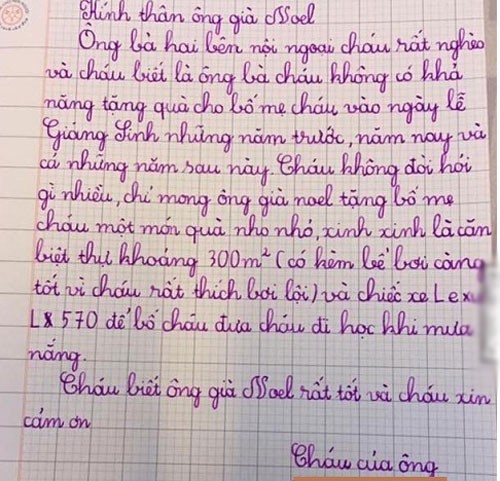 Kính thân ông già Noel
Ông bà hai bên nội ngoại cháu rất nghèo
và cháu biết là ông bà cháu không có khả
năng tặng quà cho bố mẹ cháu vào ngày lễ
Giáng Sinh những năm trước, năm nay và
cả những năm sau này. Cháu không đòi hỏi
gì nhiều, chỉ mong ông già noel tặng bố mẹ
cháu một món quà nho nhỏ, xinh xinh là căn
biệt thự khoảng 300m² (có kèm bể bơi càng
tốt vì cháu rất thích bơi lội) và chiếc xe Lexu
LX 570 để bố cháu đưa cháu đi học khi mưa
nắng.
Cháu biết ông già Noel rất tốt và cháu xin
cảm ơn
Cháu của ông